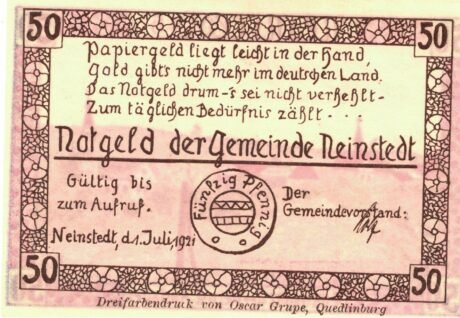 50 50
Papiergeld liegt leicht in der Hand,
Gold gibt's nicht mehr im deutschen Land.
Das Notgeld drum-'s sei nicht verhehlt-
Zum täglichen Bedürfnis zählt - - -
Notgeld der Gemeinde Neinstedt
Gültig bis
zum Aufruf.
Neinstedt, d. 1. Juli 1921
Fünfzig Pfennig
Der
Gemeindevorstand:
50 50
Dreifarbendruck von Oscar Grupe, Quedlinburg